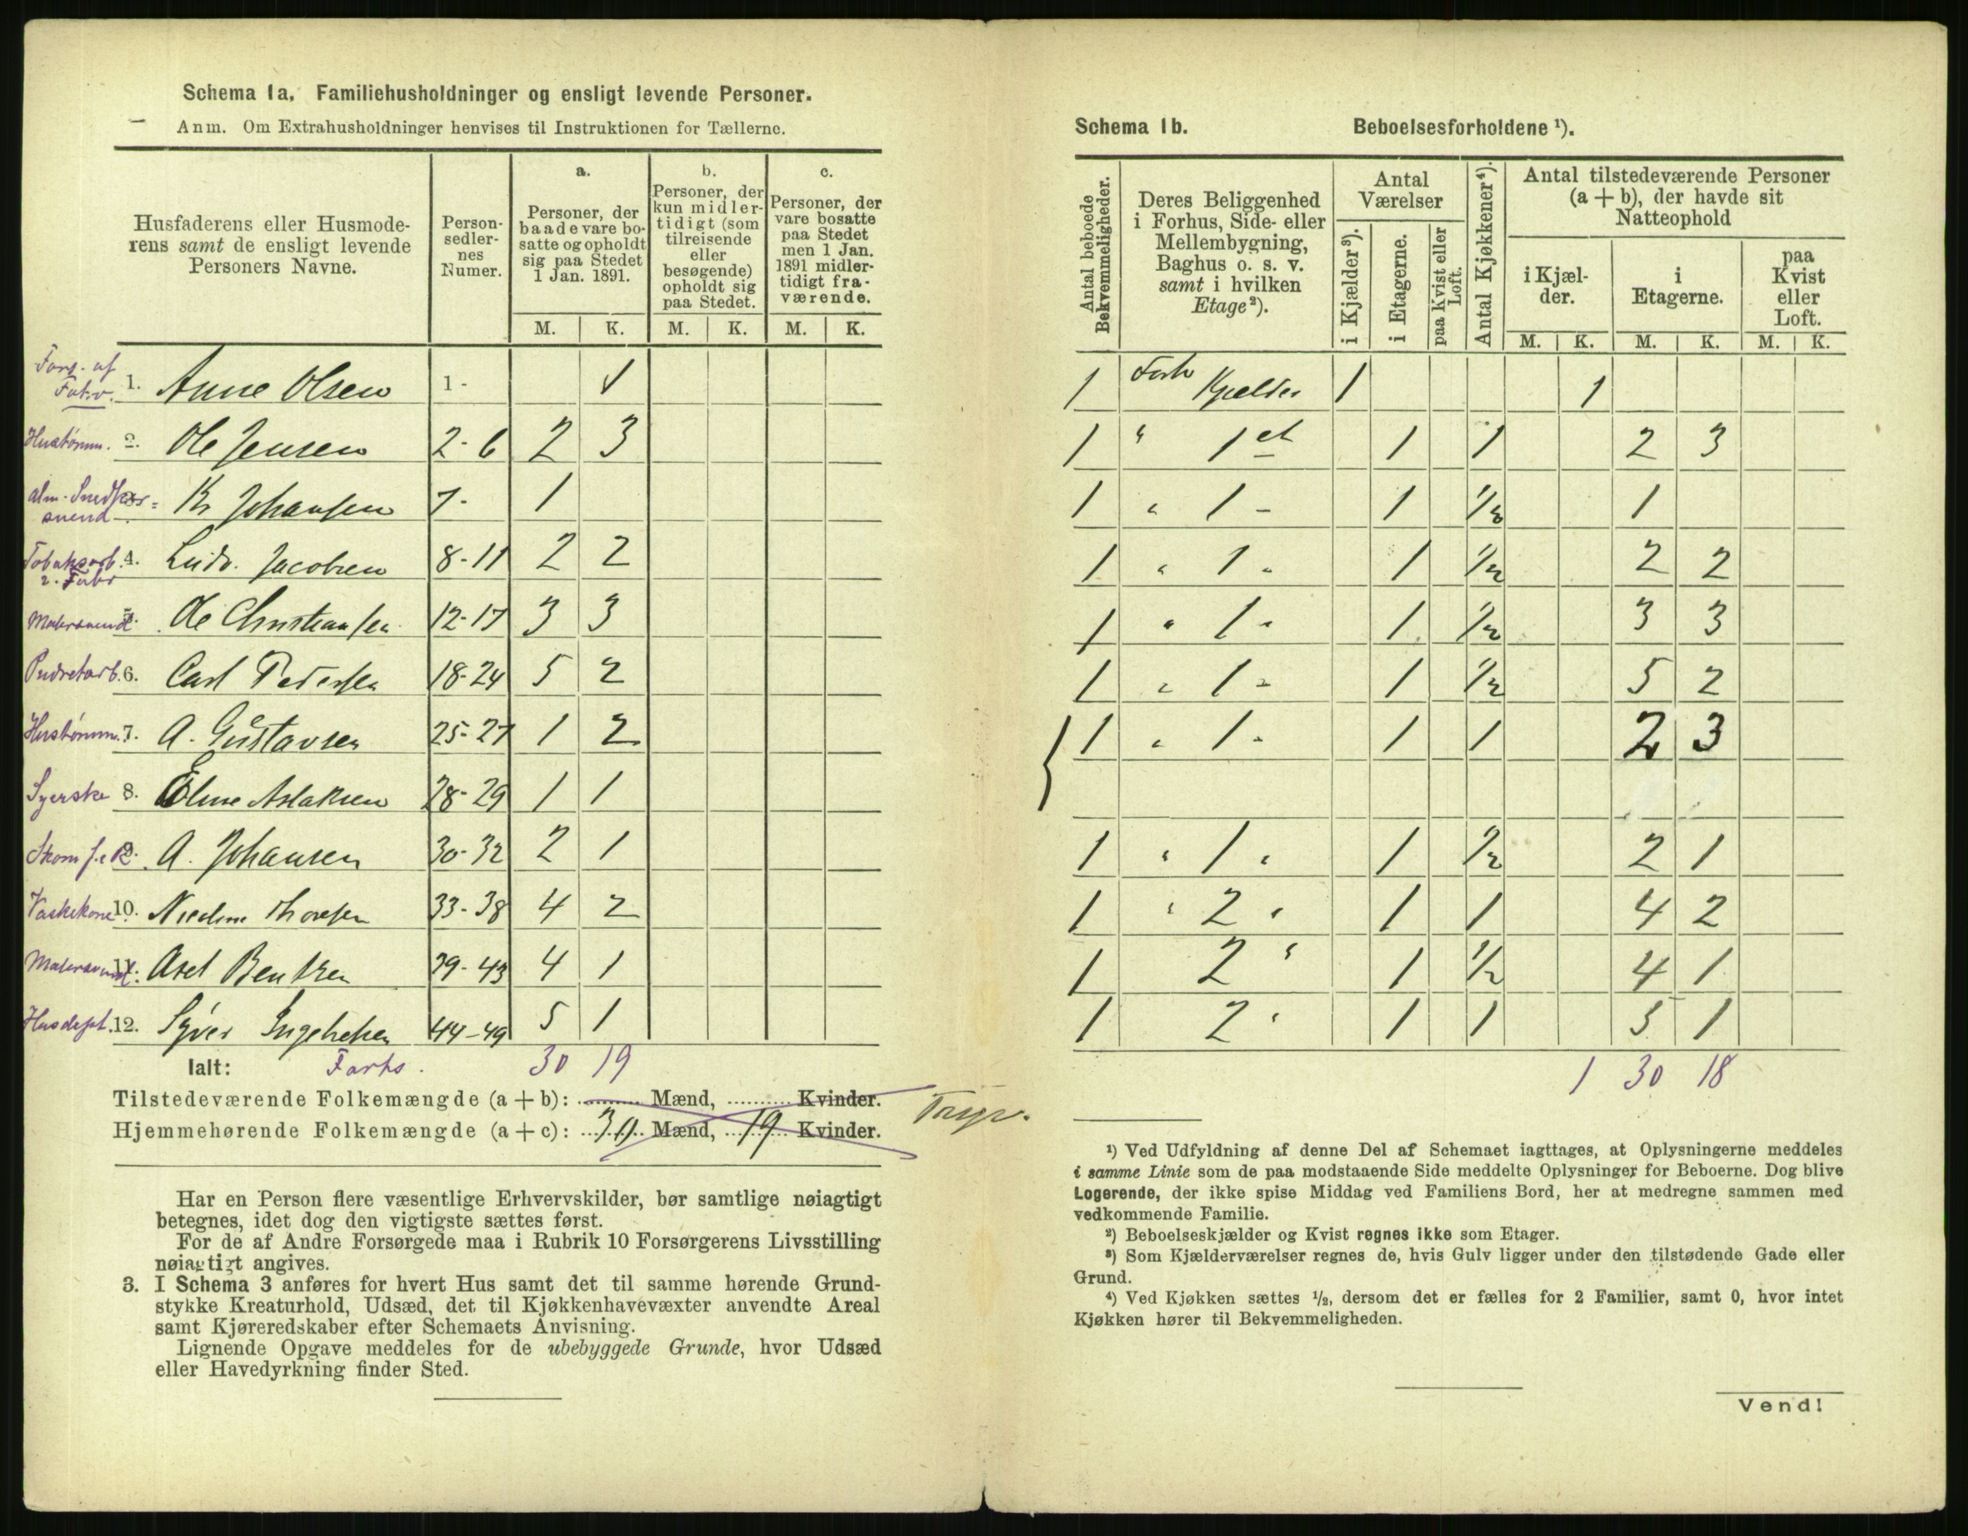 Schema 1a. Familiehusholdninger og ensligt levende Personer.
Anm. Om Extrahusholdninger henvises til Instruktionen for Tællerne.
Husfaderens eller Husmoderens samt de ensligt levende Personers Navne.
Person-sedlernes Numer.
a. Personer, der baade vare bosatte og opholdt sig paa Stedet 1 Jan. 1891.
b. Personer, der kun midlertidigt (som tilreisende eller besøgende) opholdt sig paa Stedet.
c. Personer, der vare bosatte paa Stedet men 1 Jan. 1891 midlertidigt fraværende.
M. K. M. K. M. K.
Fors. af Fatv. 1. Anne Olsen 1 - 1
Hustømm. 2. Ole Jensen 2-6 2 3
alm. Snedkersvend 3. Kr Johansen 7- 1
Tobaksarb. i Fabr 4. Ludv. Jacobsen 8-11 2 2
Malersvend 5. Ole Christiansen 12-17 3 3
Pudretarb. 6. Carl Pedersen 18-24 5 2
Hustømm. 7. A. Gustavsen 25-27 1 2
Syerske 8. Elme Aslaksen 28-29 1 1
9. A. Johansen 30-32 2 1
Vaskekone 10. Thoresen 33-38 4 2
Malersvend 11. Axel Bentzen 39-43 4 1
12. Syver Ingebretsen 44-49 5 1
Ialt: 30 19
Tilstedeværende Folkemængde (a + b): Mænd, Kvinder.
Hjemmehørende Folkemængde (a + c): 30 Mænd, 19 Kvinder.
Har en Person flere væsentlige Erhvervskilder, bør samtlige nøiagtigt
betegnes, idet dog den vigtigste sættes først.
For de af Andre Forsørgede maa i Rubrik 10 Forsørgerens Livsstilling
nøiagtigt angives.
3. I Schema 3 anføres for hvert Hus samt det til samme hørende Grund-
stykke Kreaturhold, Udsæd, det til Kjøkkenhavevæxter anvendte Areal
samt Kjøreredskaber efter Schemaets Anvisning.
Lignende Opgave meddeles for de ubebyggede Grunde, hvor Udsæd
eller Havedyrkning finder Sted.
Schema 1b. Beboelsesforholdene ¹).
Antal beboede Bekvemmeligheder.
Deres Beliggenhed i Forhus, Side- eller Mellembygning, Baghus o. s. v. samt i hvilken Etage²).
Antal Værelser
i Kjælder³). i Etagerne. paa Kvist eller Loft.
Antal Kjøkkener⁴).
Antal tilstedeværende Personer (a + b), der havde sit Natteophold
i Kjælder. i Etagerne. paa Kvist eller Loft.
M. K. M. K. M. K.
1 Forh Kjælder 1 1
1 " 1 et 1 1 2 3
1 " 1 - 1 ½ 1
1 " 1 - 1 ½ 2 2
1 " 1 - 1 ½ 3 3
1 " 1 - 1 ½ 5 2
1 " 1 - 1 1 2 3
1 " 1 " 1 ½ 2 1
1 " 2 " 1 1 4 2
1 2 " 1 ½ 4 1
1 2 " 1 1 5 1
1 30 18
¹) Ved Udfyldning af denne Del af Schemaet iagttages, at Oplysningerne meddeles
i samme Linie som de paa modstaaende Side meddelte Oplysninger for Beboerne. Dog blive
Logerende, der ikke spise Middag ved Familiens Bord, her at medregne sammen med
vedkommende Familie.
²) Beboelseskjælder og Kvist regnes ikke som Etager.
³) Som Kjælderværelser regnes de, hvis Gulv ligger under den tilstødende Gade eller
Grund.
⁴) Ved Kjøkken sættes ½, dersom det er fælles for 2 Familier, samt 0, hvor intet
Kjøkken hører til Bekvemmeligheden.
Vend!